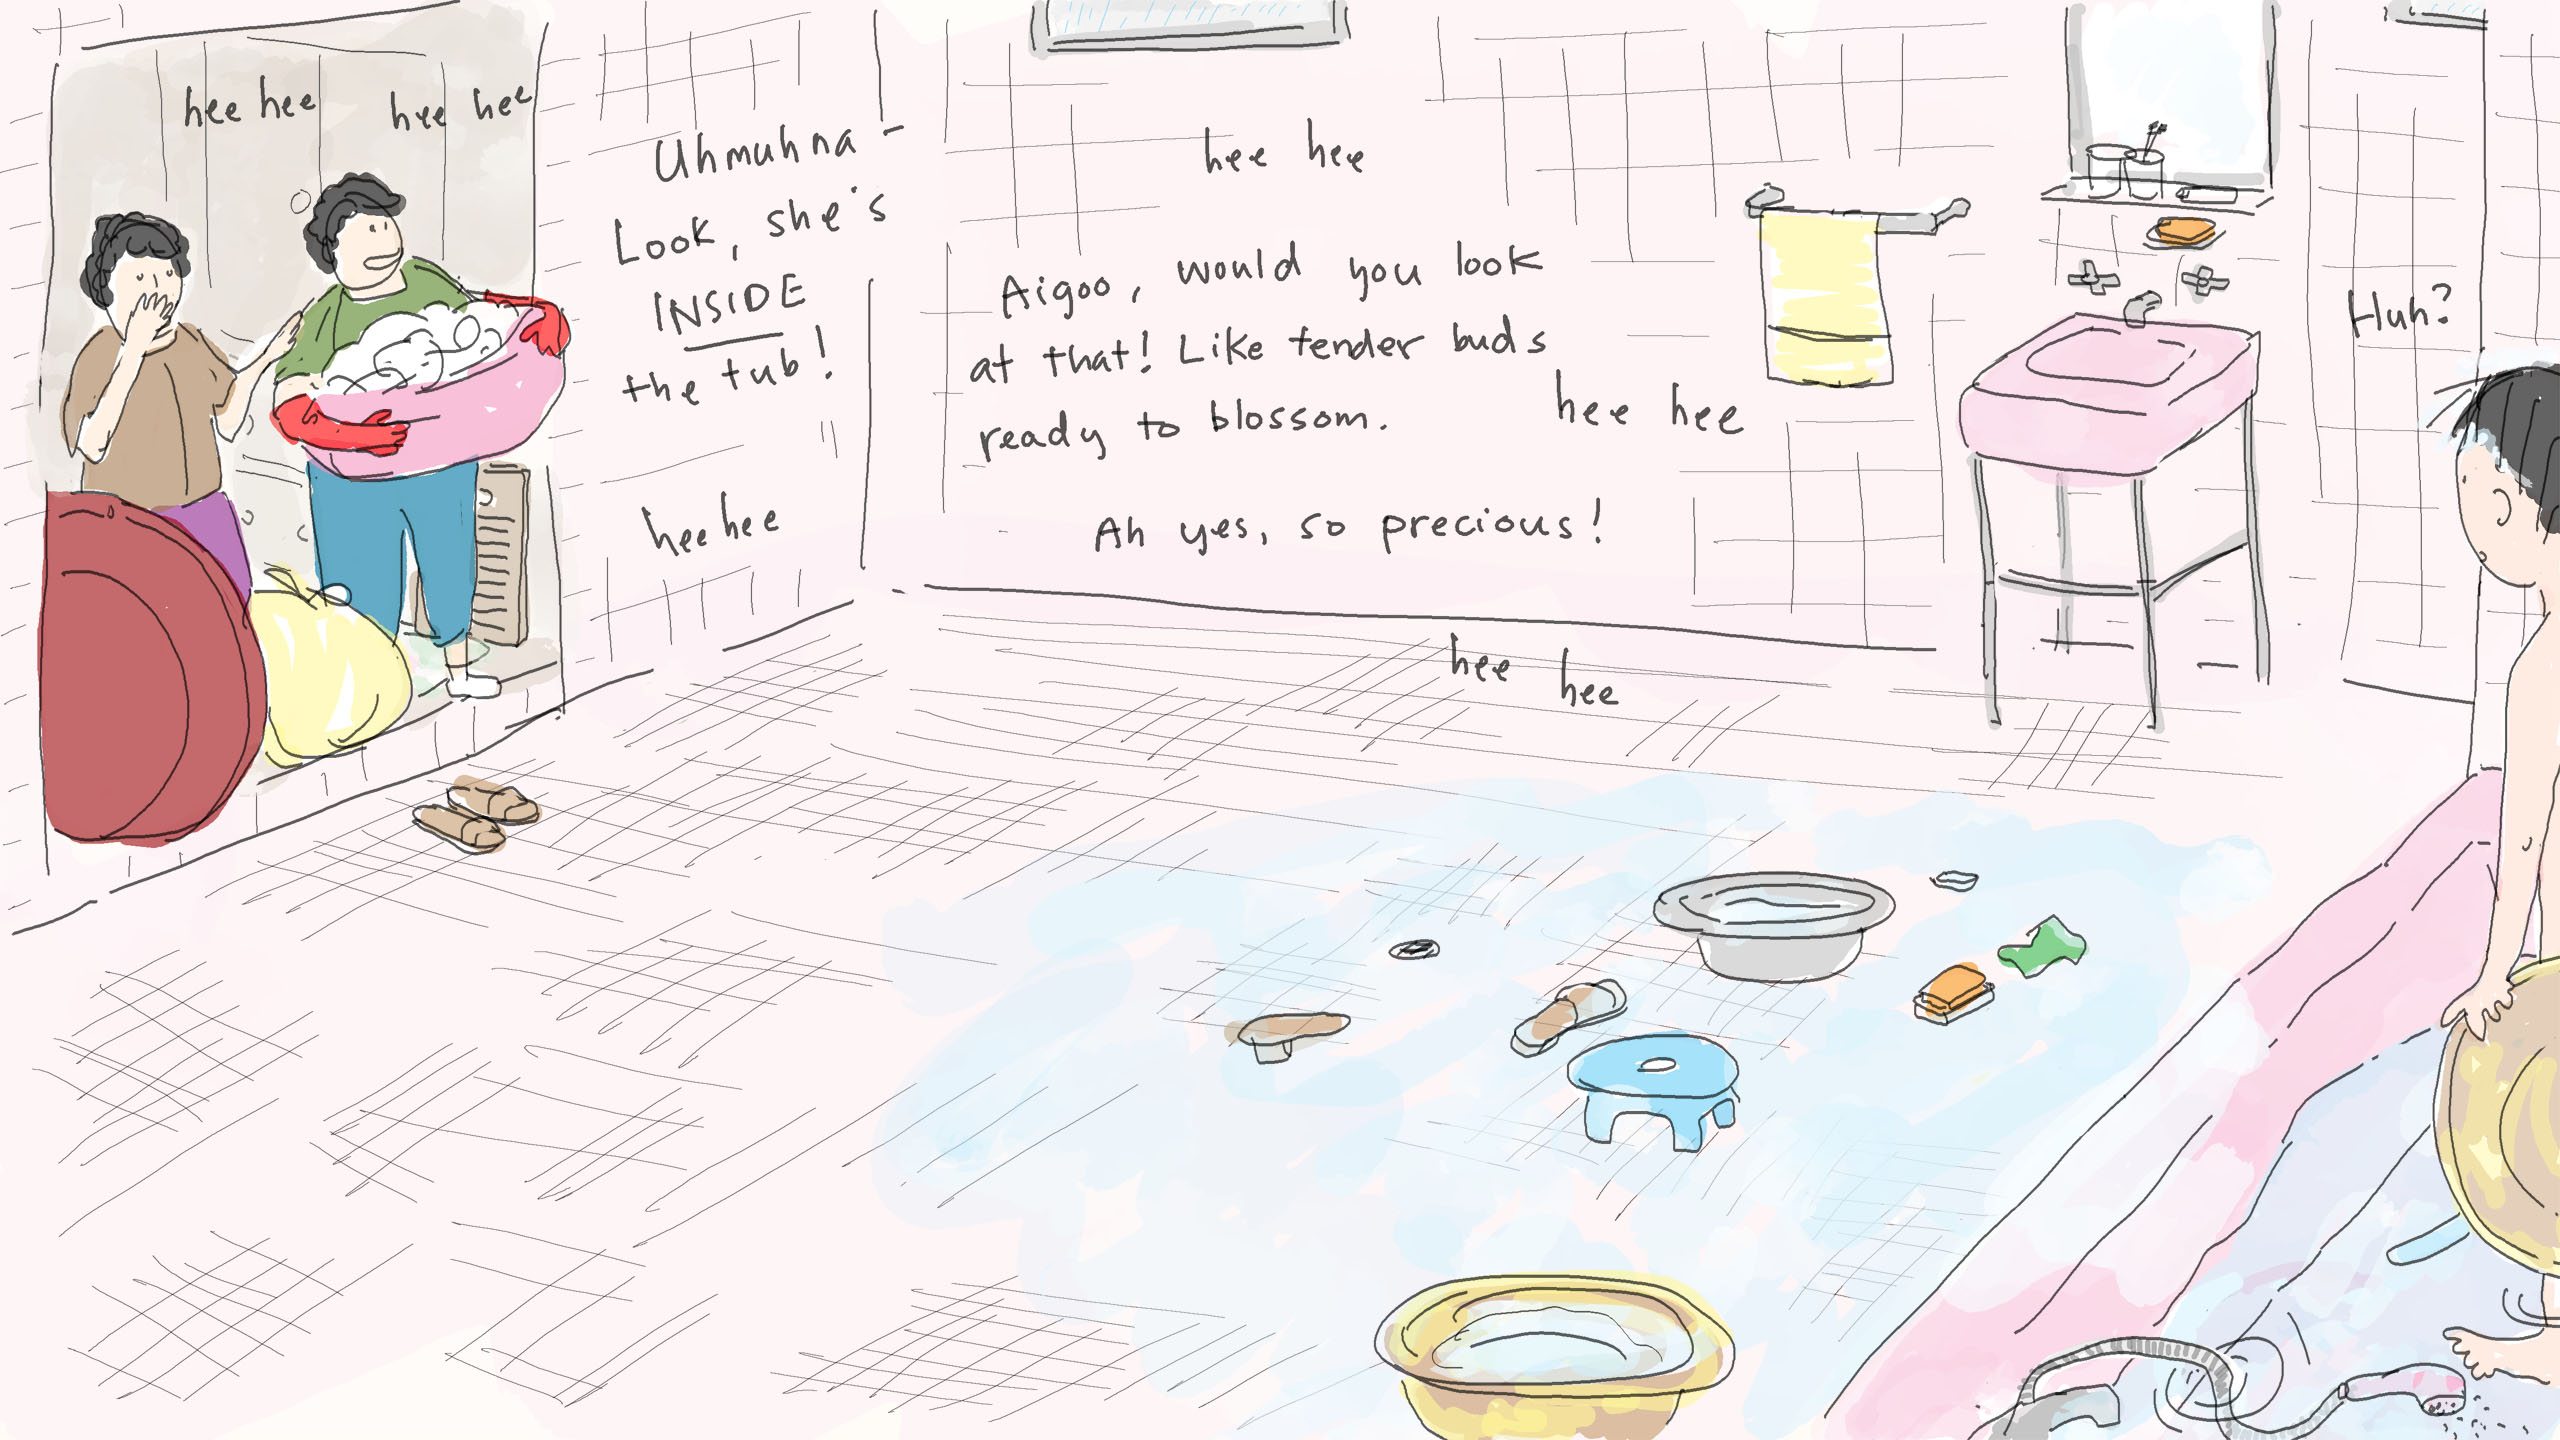 hee hee
hee hee
Uhmuhna -
Look, she's
INSIDE
the tub!
hee hee
hee hee
Aigoo, would you look
at that! Like tender buds
ready to blossom.
hee hee
Ah yes, so precious!
hee
hee
Huh?